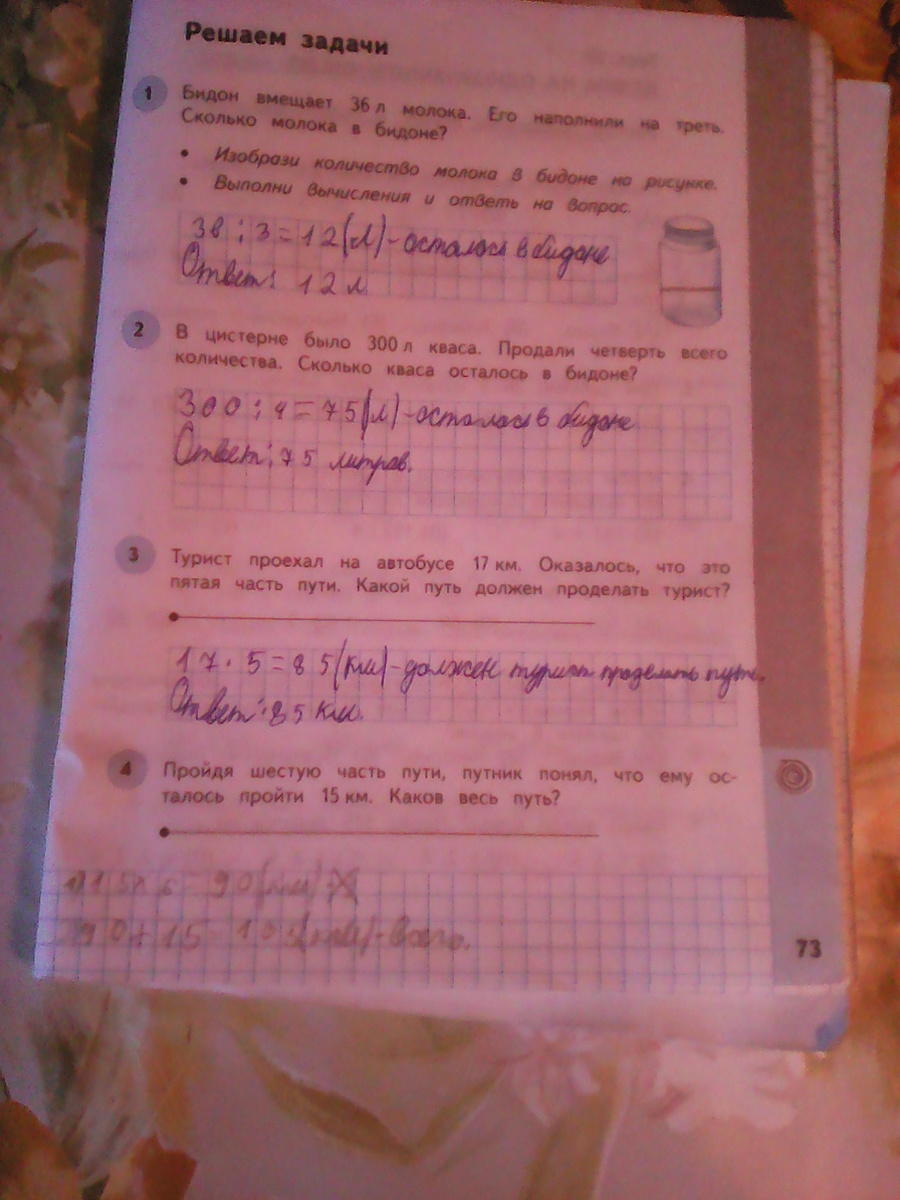 Решаем задачи
1 Бидон вмещает 36 л молока. Его наполнили на треть.
Сколько молока в бидоне?
• Изобрази количество молока в бидоне на рисунке.
• Выполни вычисления и ответь на вопрос.
36 : 3 = 12 (л) - осталось в бидоне
Ответ: 12 л
2 В цистерне было 300 л кваса. Продали четверть всего
количества. Сколько кваса осталось в бидоне?
300 : 4 = 75 (л) - осталось в бидоне
Ответ: 75 литров.
3 Турист проехал на автобусе 17 км. Оказалось, что это
пятая часть пути. Какой путь должен проделать турист?
17 · 5 = 85 (км) - должен турист проделать путь.
Ответ: 85 км.
4 Пройдя шестую часть пути, путник понял, что ему ос-
талось пройти 15 км. Каков весь путь?
= 90 (км)
90 + 15 = 105 (км) - всего.
73